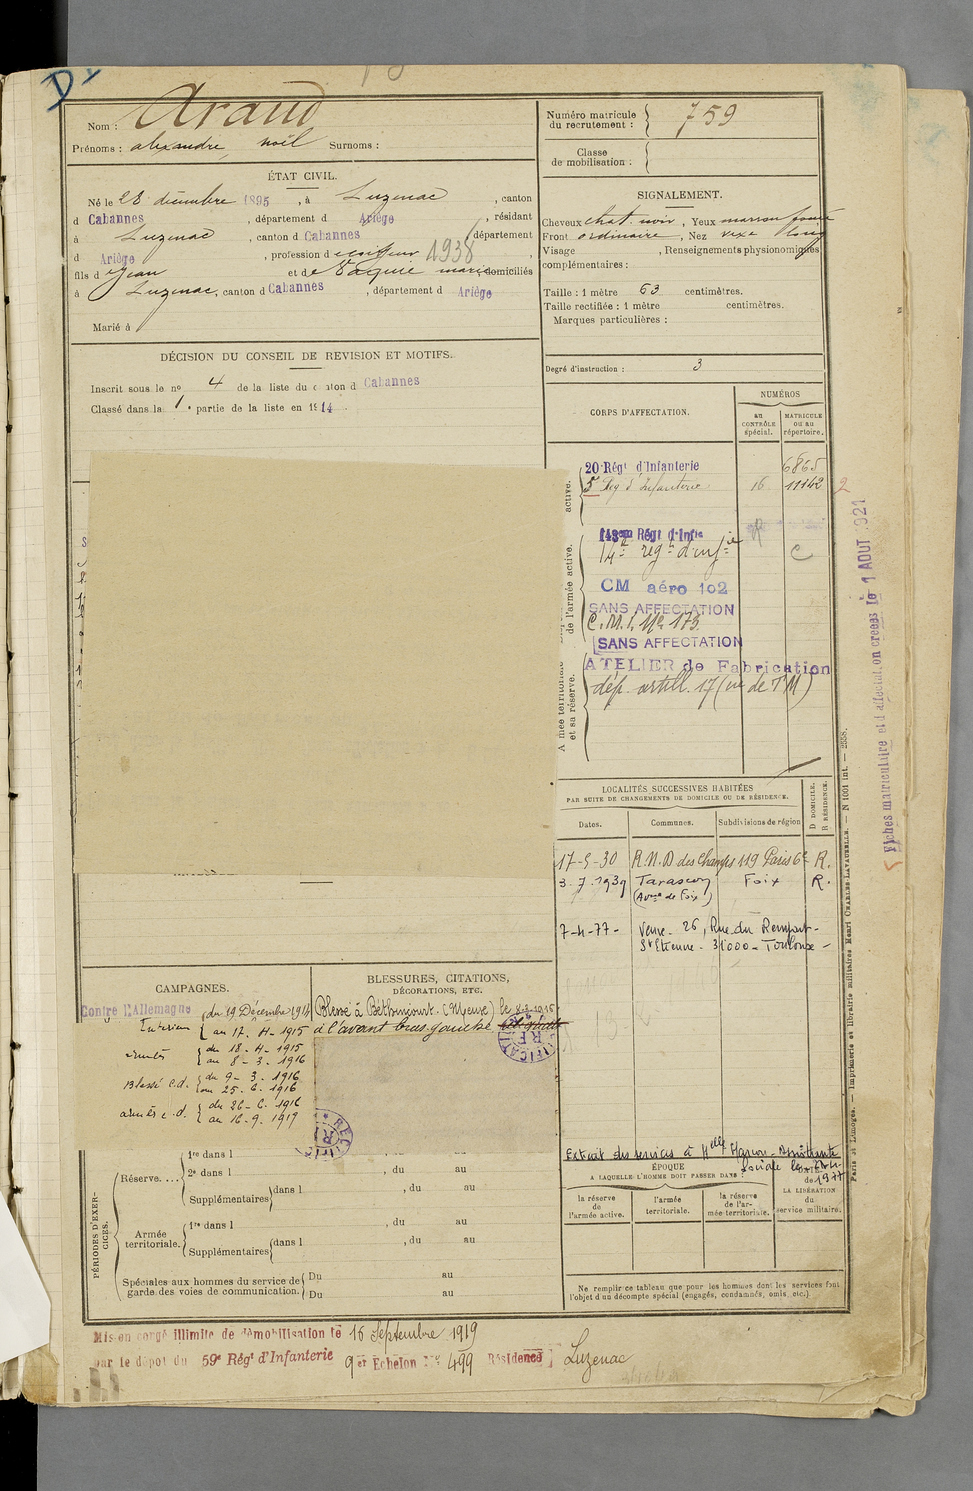 Nom : Araud
Prénoms : alexandre, noël Surnoms :
Numéro matricule du recrutement : 759
Classe de mobilisation :
ÉTAT CIVIL.
Né le 28 décembre 1895, à Luzenac, canton
d Cabannes, département d Ariège, résidant
à Luzenac, canton d Cabannes département
d Ariège, profession de coiffeur 1938,
fils de Jean et de domiciliés
à Luzenac, canton d Cabannes, département d Ariège
Marié à
SIGNALEMENT.
Cheveux chat. noir, Yeux marron foncé
Front ordinaire, Nez vexe long
Visage , Renseignements physionomiques
complémentaires :
Taille : 1 mètre 63 centimètres.
Taille rectifiée : 1 mètre centimètres.
Marques particulières :
Degré d'instruction : 3
DÉCISION DU CONSEIL DE REVISION ET MOTIFS.
Inscrit sous le nº 4 de la liste du canton d Cabannes
Classé dans la 1e partie de la liste en 1914
CORPS D'AFFECTATION.
NUMÉROS
au CONTRÔLE spécial.
MATRICULE ou au répertoire.
active.
20e Régt d'Infanterie 6865
5e Reg d'Infanterie 16 11142 2
de l'armée active.
143em Régt d'Infie
14e reg t d'infie C
CM aéro 102
SANS AFFECTATION
C.M.I. No 173
SANS AFFECTATION
Armée territoriale et sa réserve.
ATELIER de Fabrication
dép. artill. 17 (
Fiches matriculaire et d'affectation créées le 1 AOUT 1921
LOCALITÉS SUCCESSIVES HABITÉES
PAR SUITE DE CHANGEMENTS DE DOMICILE OU DE RÉSIDENCE.
Dates. Communes. Subdivisions de région
D DOMICILE. R RÉSIDENCE.
17-5-30 R.N.D des Champs 119 Paris 6e R.
3-7-1939 Tarascon Foix R.
(Avenue de Foix)
7-4-77- Veuve - 26, Rue du Rempart-
St Etienne - 31000 - Toulouse -
CAMPAGNES.
Contre l'Allemagne du 19 Décembre 1914
Intérieur au 17-4-1915
armées du 18-4-1915
au 8-3-1916
Blessé c.d. du 9-3-1916
au 25-6-1916
armées c.d. du 26-6-1916
au 16-9-1919
BLESSURES, CITATIONS,
DÉCORATIONS, ETC.
Blessé à Béthincourt (Meuse) le 8-3-1916
à l'avant bras gauche
PÉRIODES D'EXERCICES.
Réserve....
1re dans l
2e dans l , du au
Supplémentaires dans l , du au
Armée territoriale.
1re dans l , du au
Supplémentaires dans l , du au
Spéciales aux hommes du service de garde des voies de communication.
Du au
Du au
Extrait des services à Melle Assistante
Sociale 1977
ÉPOQUE
A LAQUELLE L'HOMME DOIT PASSER DANS :
la réserve de l'armée active.
l'armée territoriale.
la réserve de l'armée territoriale.
DATE de LA LIBÉRATION du service militaire.
Ne remplir ce tableau que pour les hommes dont les services font
l'objet d'un décompte spécial (engagés, condamnés, omis, etc.).
Paris et Limoges. — Imprimerie et librairie militaires Henri CHARLES-LAVAUZELLE. — N 1001 int. — 2658.
Mis en congé illimité de démobilisation le 16 Septembre 1919
par le dépot du 59e Régt d'Infanterie 9e Echelon No 499 Résidence Luzenac